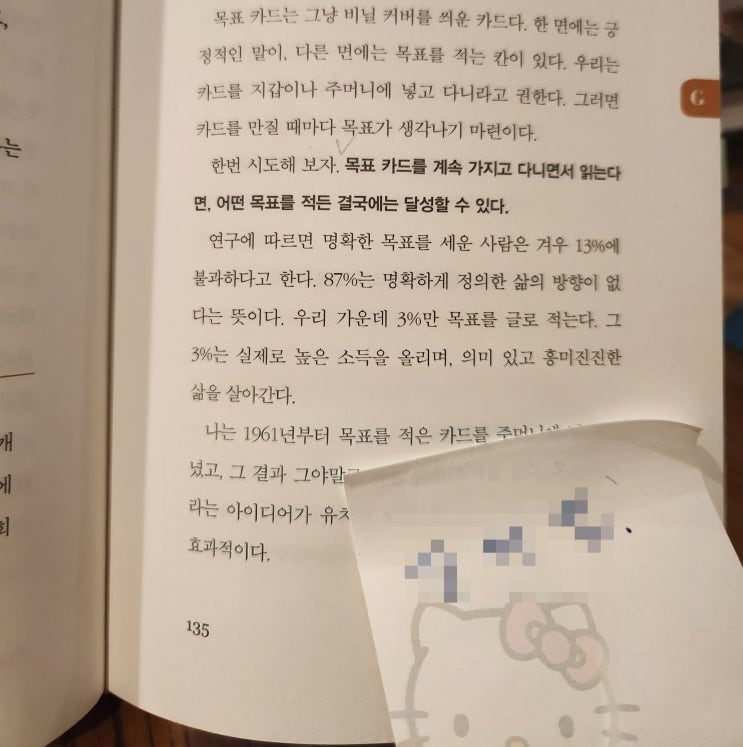 목표 카드는 그냥 비닐 커버를 씌운 카드다. 한 면에는 긍
정적인 말이, 다른 면에는 목표를 적는 칸이 있다. 우리는
카드를 지갑이나 주머니에 넣고 다니라고 권한다. 그러면
카드를 만질 때마다 목표가 생각나기 마련이다.
한번 시도해 보자. 목표 카드를 계속 가지고 다니면서 읽는다
면, 어떤 목표를 적든 결국에는 달성할 수 있다.
연구에 따르면 명확한 목표를 세운 사람은 겨우 13%에
불과하다고 한다. 87%는 명확하게 정의한 삶의 방향이 없
다는 뜻이다. 우리 가운데 3%만 목표를 글로 적는다. 그
3%는 실제로 높은 소득을 올리며, 의미 있고 흥미진진한
삶을 살아간다.
나는 1961년부터 목표를 적은 카드를
녔고, 그 결과
라는 아이디어가
효과적이다.
135
G
는
개
에
회